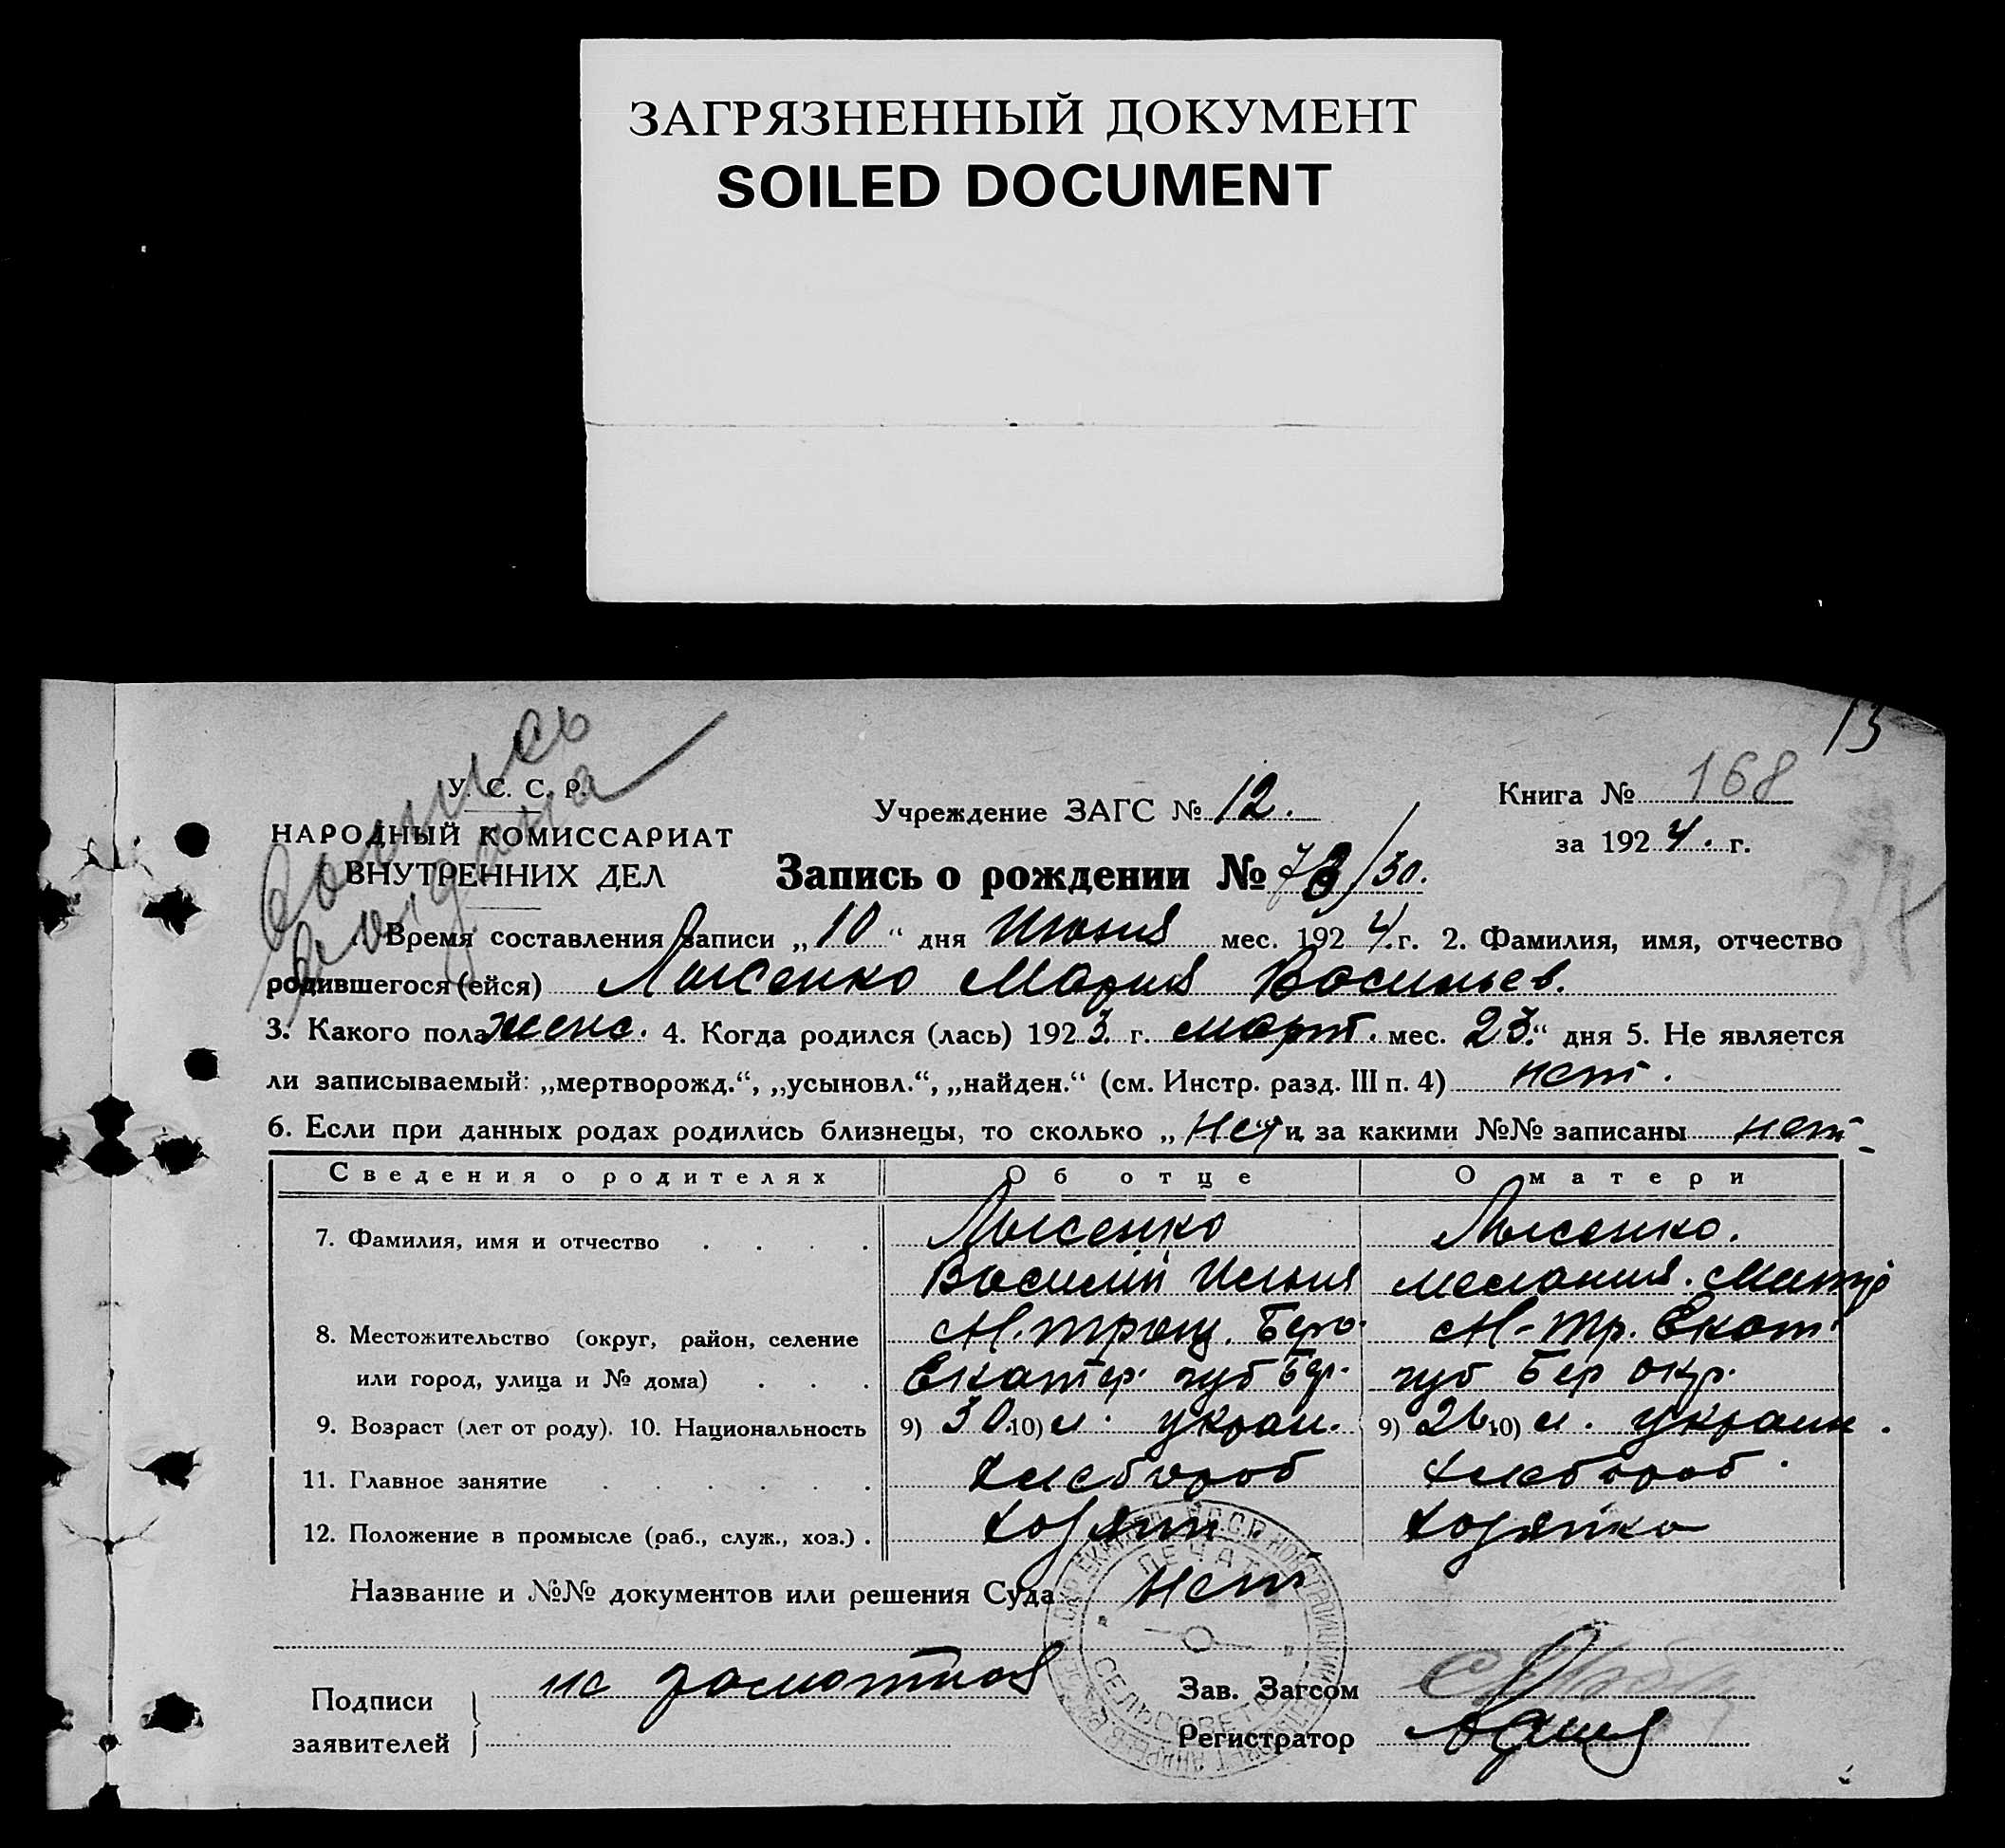 ЗАГРЯЗНЕННЫЙ ДОКУМЕНТ
SOILED DOCUMENT
13
У. С. С. Р.
НАРОДНЫЙ КОМИССАРИАТ
ВНУТРЕННИХ ДЕЛ
Учреждение ЗАГС № 12.
Книга № 168
за 1924. г.
Запись о рождении № 73/30.
1. Время составления записи „10“ дня Июня мес. 1924 г. 2. Фамилия, имя, отчество
родившегося (ейся) Лысенко Мария Васильев.
3. Какого пола женс. 4. Когда родился (лась) 1923 г. март. мес. 23.“ дня 5. Не является
ли записываемый: „мертворожд.“, „усыновл.“, „найден.“ (см. Инстр. разд. III п. 4) нет.
6. Если при данных родах родились близнецы, то сколько „нет“ и за какими №№ записаны нет
Сведения о родителях Об отце О матери
7. Фамилия, имя и отчество Лысенко Лысенко.
Василий Ильия Мелания. Митр
8. Местожительство (округ, район, селение Н. троиц. Бер. Н-Тр. Екат.
или город, улица и № дома) Екатер. губ Бер. губ Бер окр.
9. Возраст (лет от роду). 10. Национальность 9) 30 10) украи. 9) 26 10) украин.
11. Главное занятие хлебороб хлебороб.
12. Положение в промысле (раб., служ., хоз.) Хозяин Хозяйка
Название и №№ документов или решения Суда нет
ПЕЧАТЬ
СЕЛЬСОВЕТА
Подписи не грамотная Зав. Загсом
заявителей Регистратор